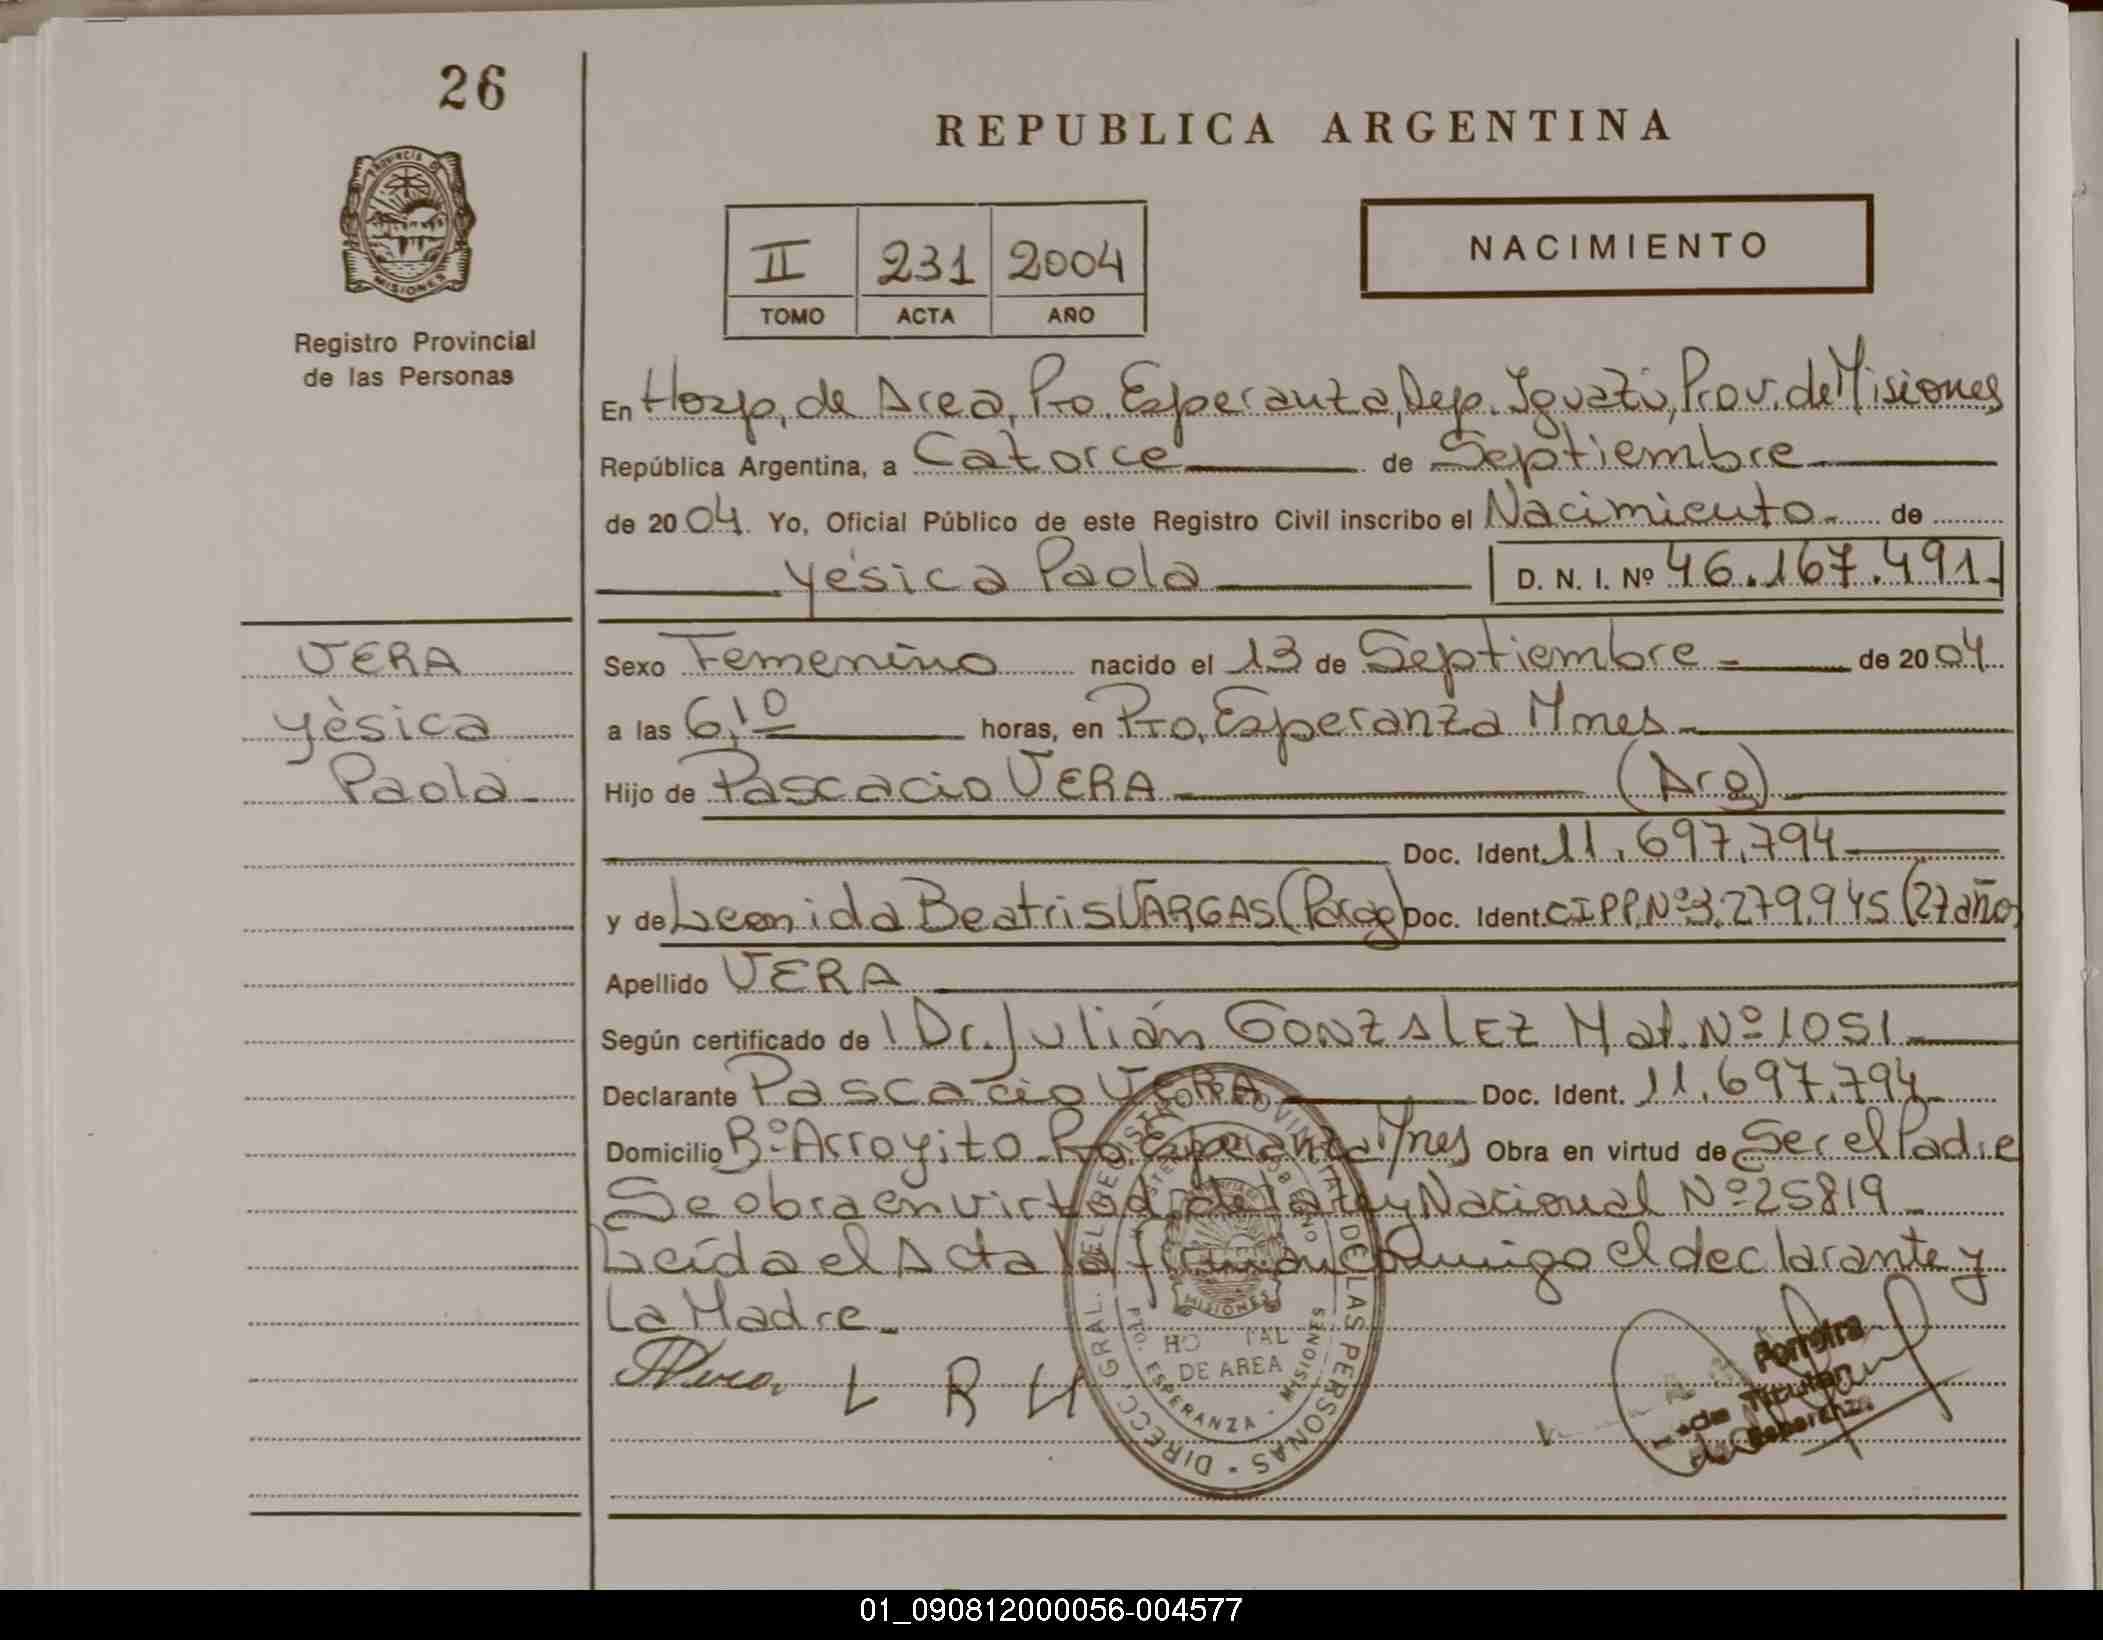 26
REPUBLICA ARGENTINA
PROVINCIA DE
MISIONES
Registro Provincial
de las Personas
II 231 2004
TOMO ACTA AÑO
NACIMIENTO
En Hosp. de Area, Pto. Esperanza, Dep. Iguazú, Prov. de Misiones
República Argentina, a Catorce de Septiembre
de 2004. Yo, Oficial Público de este Registro Civil inscribo el Nacimiento de
Yésica Paola D. N. I. Nº 46.167.491
VERA
Yèsica
Paola
Sexo Femenino nacido el 13 de Septiembre de 2004
a las 6,10 horas, en Pto. Esperanza Mnes
Hijo de Pascacio VERA (Arg)
Doc. Ident. 11.697.794
y de Leonida Beatris VARGAS (Parag) Doc. Ident. CIPP.Nº3.279.945 (27 años
Apellido VERA
Según certificado de Dr. Julián GONZALEZ Mat. Nº 1051
Declarante Pascacio VERA Doc. Ident. 11.697.794
Domicilio Bº Arroyito Pto. Esperanza Mnes Obra en virtud de Ser el Padre
Se obra en virtud de la Ley Nacional Nº 25819
Leída el Acta la firman Conmigo el declarante y
La Madre
L B V
DIRECC. GRAL. DEL REGISTRO PROVINCIAL DE LAS PERSONAS
MISIONES
DE AREA
PTO. ESPERANZA - MISIONES
Ferreira
Titular
01_090812000056-004577